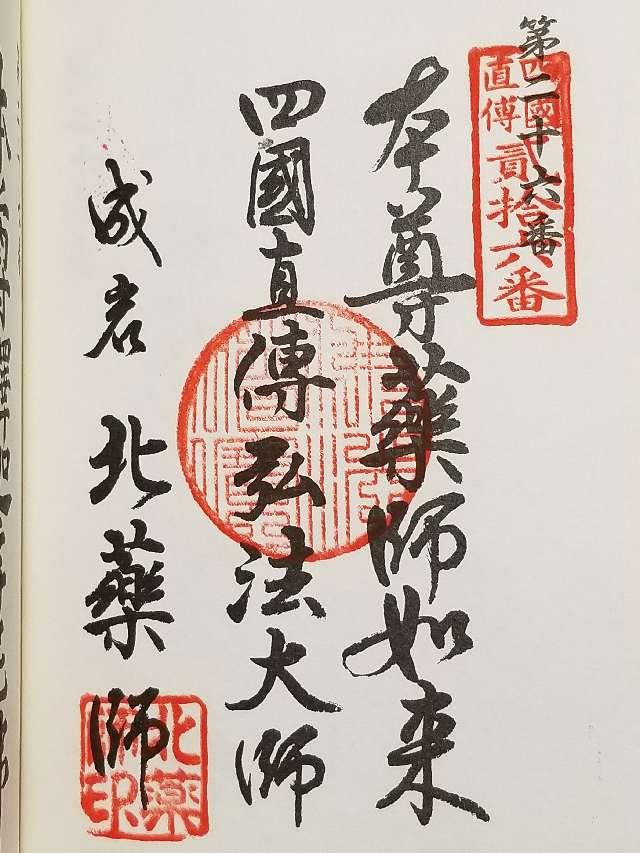 第二十六番
四國
直傳
貳拾六番
本尊薬師如来
四國直傳弘法大師
成岩 北薬師
北薬
師印